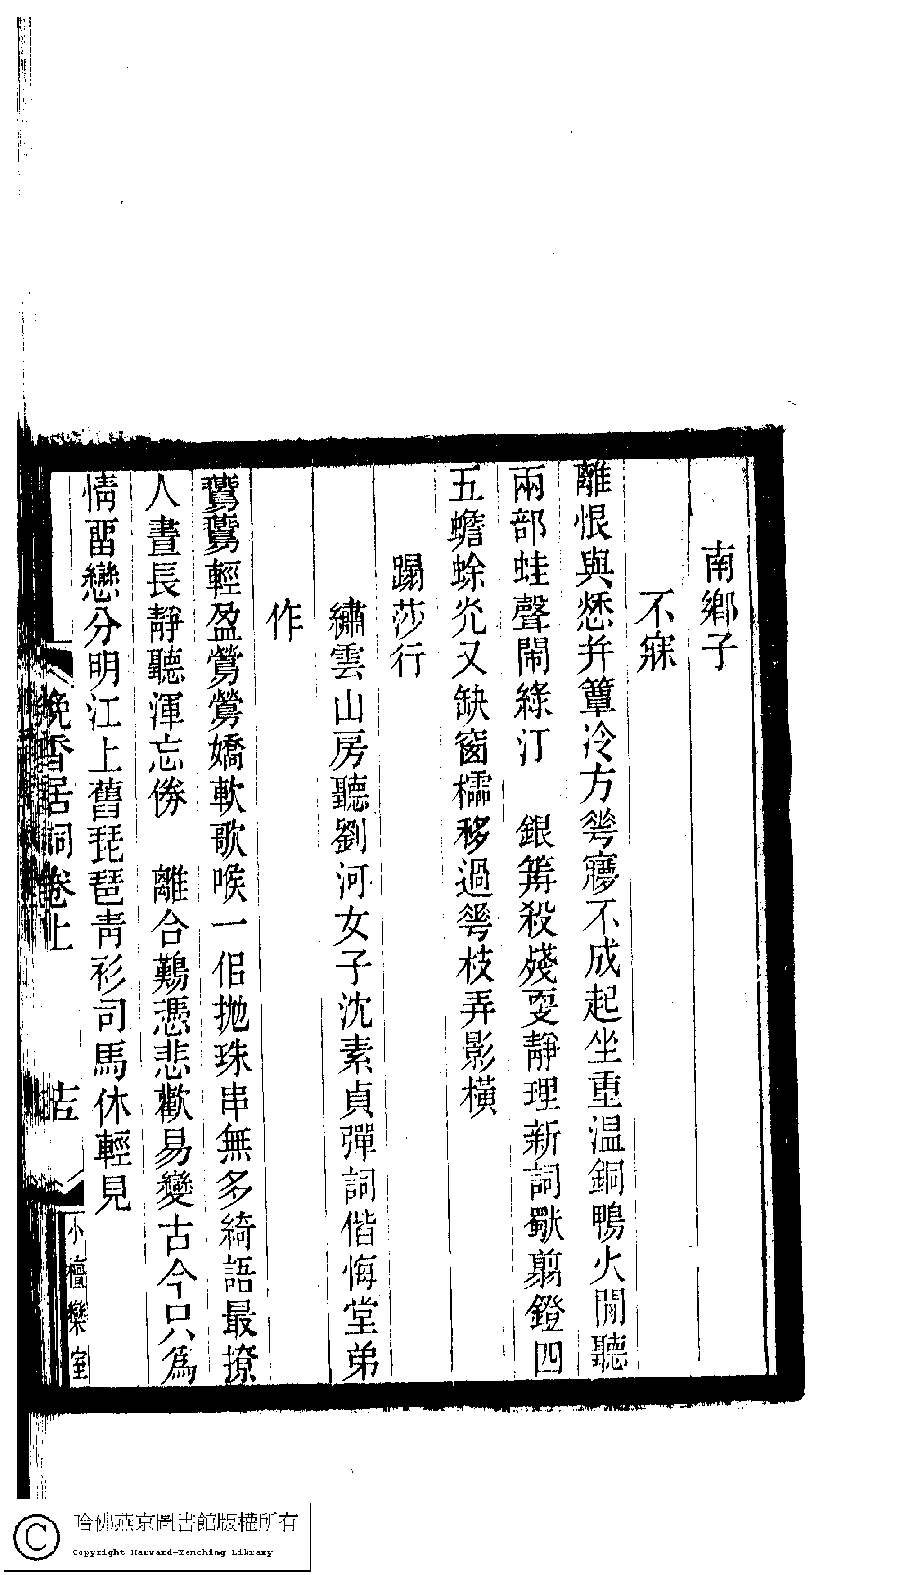 南鄉子
不寐
離恨與愁并簟冷方花㝱不成起坐重温銅鴨火閒聽
兩部蛙聲鬧綠汀　銀篝殺殘更靜理新詞獨翦鐙四
五蟾蜍光又缺窗櫺移過花枝弄影橫
蹋莎行
繡雲山房聽劉河女子沈素貞彈詞偕悔堂弟
作
燕燕輕盈鶯鶯嬌軟歌喉一佀拋珠串無多綺語最撩
人晝長靜聽渾忘倦　離合鷄憑悲歡易變古今只爲
情畱戀分明江上舊琵琶青衫司馬休輕見
晚香居詞卷上
小檀欒室
哈佛燕京圖書館版權所有
Copyright Harvard-Yenching Library